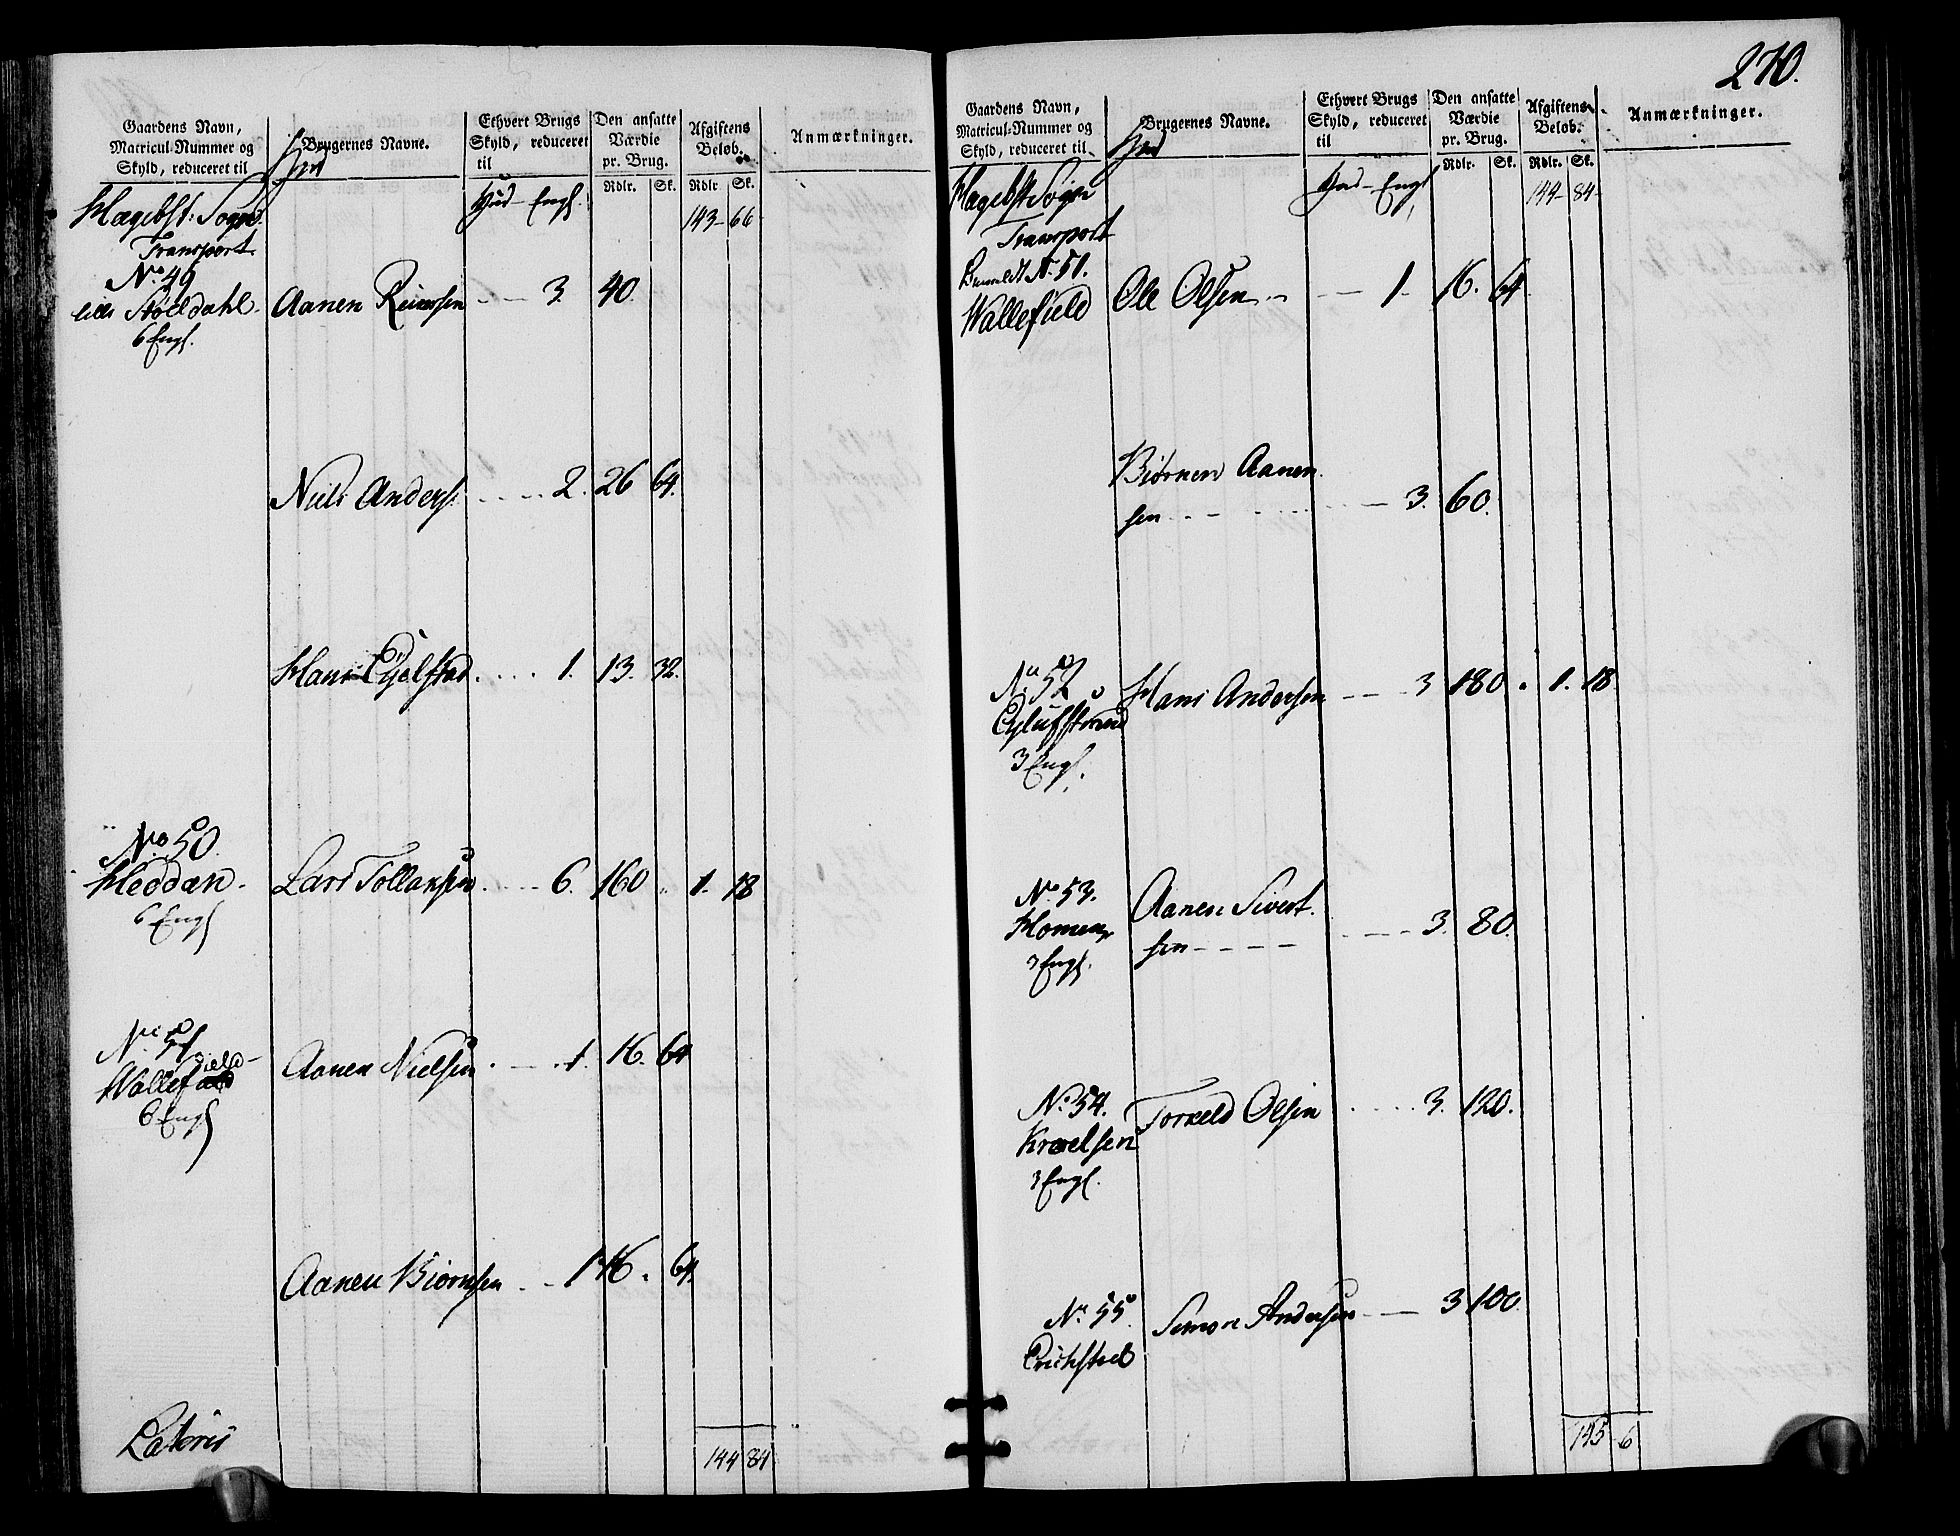 Gaardens Navn,
Matricul-Nummer og
Skyld, reduceret til
Hud
Brugernes Navne.
Ethvert Brugs
Skyld, reduceret
til
Den ansatte
Værdie
pr. Brug.
Afgiftens
Beløb.
Anmærkninger.
Rdlr. Sk. Rdlr Sk.
Hægebst: Sogn Hud - Engl. 143 - 66
Transport
No. 49
lille Støeldahl Aanen Reiersen 3. 40.
6 Engl.
Niels Anders. 2. 26 64.
Hans Eyelstad 1. 13. 32.
No. 50.
Heddan Lars Tollaksen 6. 160 1. 18
6 Engl
No. 51
Wallefield Aanen Nielsen 1. 16. 64
6 Engl
Aanen Biørnsen 1 16. 64.
Lateris 144 84
270.
Gaardens Navn,
Matricul-Nummer og
Skyld, reduceret til
Hud
Brugernes Navne.
Ethvert Brugs
Skyld, reduceret
til
Den ansatte
Værdie
pr. Brug.
Afgiftens
Beløb.
Anmærkninger.
Rdlr. Sk. Rdlr. Sk.
Hægebst Sogn Hud - Engl 144 - 84
Transport
No. 51.
Wallefield Ole Olsen 1. 16. 64
Biørnen Aanen
sen 3. 60.
No. 52
Hans Andersen 3 180 1. 18
3 Engl.
No. 53. Aanen Sivert
Homen sen 3. 80.
3 Engl.
No. 54. Torkeld Olsen 3. 120.
3 Engl.
No. 55 Simon Andersen 3 100.
Erichsted
145 6